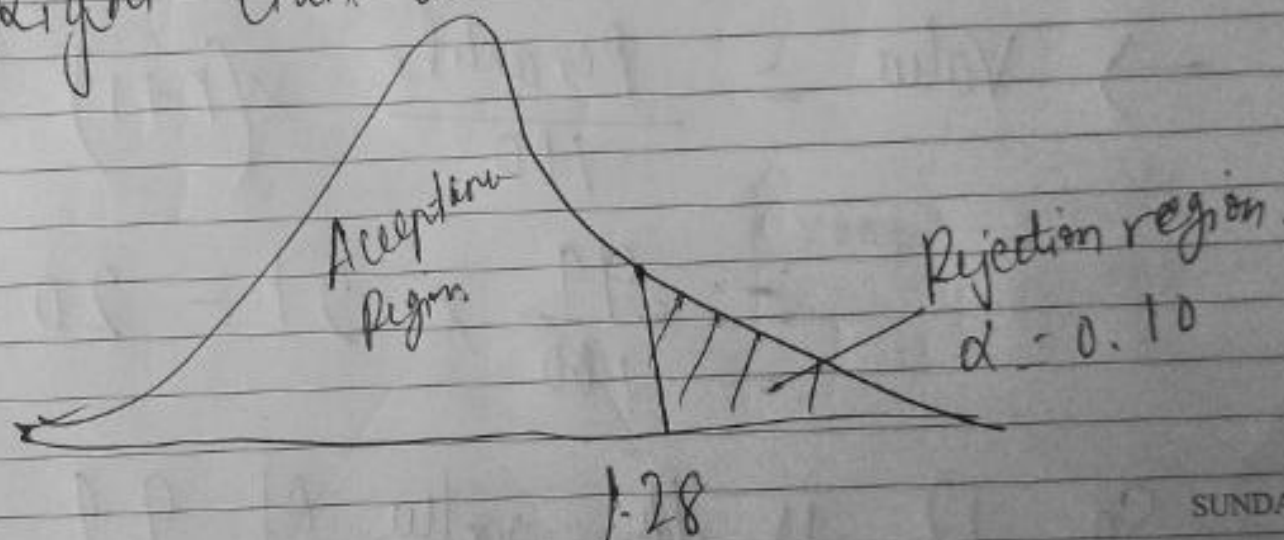 Acceptance
Region
Rejection region
α = 0.10
1.28
SUNDA